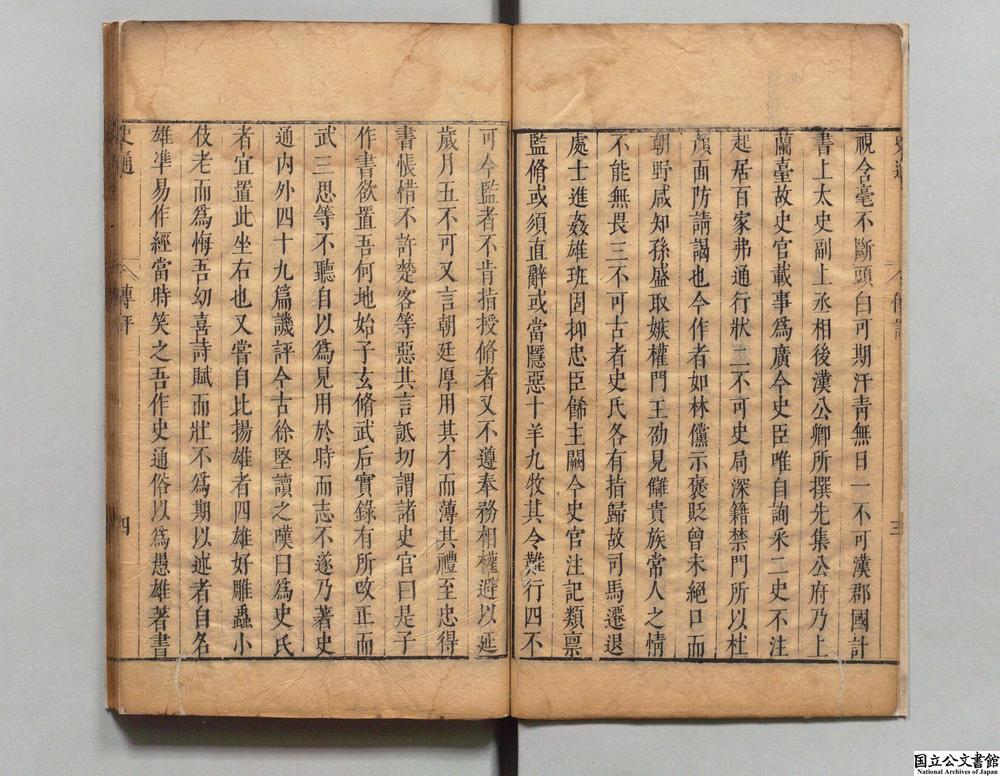 史通
三
視含毫不斷頭白可期汗青無日一不可漢郡國計
書上太史副上丞相後漢公卿所撰先集公府乃上
蘭臺故史官載事爲廣今史臣唯自詢采二史不注
起居百家弗通行狀二不可史局深籍禁門所以杜
顔面防請謁也今作者如林儻示褒貶曾未絶口而
朝野咸知孫盛取嫉權門王劭見讎貴族常人之情
不能無畏三不可古者史氏各有指歸故司馬遷退
處士進姦雄班固抑忠臣飾主闕今史官注記類禀
監脩或須直辭或當隱惡十羊九牧其令難行四不
可今監者不肯指授脩者又不遵奉務相權避以延
歲月五不可又言朝廷厚用其才而薄其禮至忠得
書悵惜不許楚客等惡其言詆切謂諸史官曰是子
作書欲置吾何地始子玄脩武后實錄有所攺正而
武三思等不聽自以爲見用於時而志不遂乃著史
通内外四十九篇譏評今古徐堅讀之嘆曰爲史氏
者宜置此坐右也又嘗自比揚雄者四雄好雕蟲小
伎老而爲悔吾幼喜詩賦而壯不爲期以述者自名
雄凖易作經當時笑之吾作史通俗以爲愚雄著書
史通
傳評
四
国立公文書館
National Archives of Japan